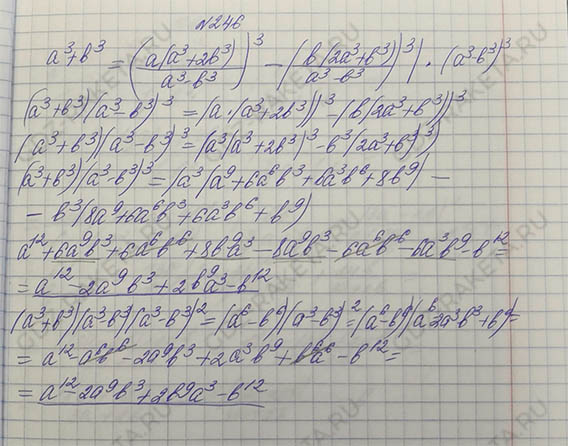 №246
a³+b³ = (a(a³+2b³)/a³-b³)³ - (b(2a³+b³)/a³-b³)³) · (a³-b³)³
(a³+b³)(a³-b³)³ = (a·(a³+2b³))³-(b(2a³+b³))³
(a³+b³)(a³-b³)³ = (a³(a³+2b³)³-b³(2a³+b³)³)
(a³+b³)(a³-b³)³ = (a³(a⁹+6a⁶b³+6a³b⁶+8b⁹) -
- b³(8a⁹+6a⁶b³+6a³b⁶+b⁹)
a¹²+6a⁹b³+6a⁶b⁶+8b⁹a³-8a⁹b³-6a⁶b⁶-6a³b⁹-b¹² =
= a¹²-2a⁹b³+2b⁹a³-b¹²
(a³+b³)(a³-b³)(a³-b³)² = (a⁶-b⁶)(a³-b³)² = (a⁶-b⁶)(a⁶-2a³b³+b⁹) =
= a¹²-a⁶b⁶-2a⁹b³+2a³b⁹+b⁶a⁶-b¹² =
= a¹²-2a⁹b³+2b⁹a³-b¹²